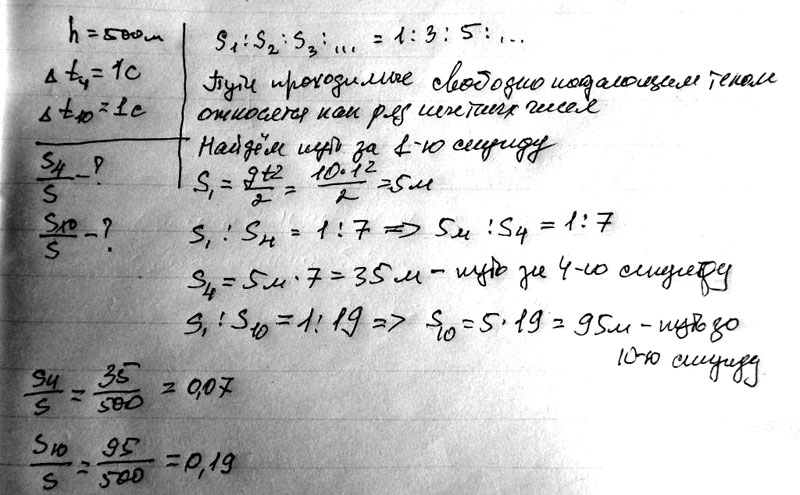 h = 500м
Δt₄ = 1с
Δt₁₀ = 1с
S₄/S - ?
S₁₀/S - ?
S₁ : S₂ : S₃ : ... = 1 : 3 : 5 : ...
Пути проходимые свободно падающим телом
относятся как ряд нечетных чисел
Найдём путь за 1-ю секунду
S₁ = gt²/2 = 10·1²/2 = 5м
S₁ : S₄ = 1 : 7 => 5м : S₄ = 1 : 7
S₄ = 5м · 7 = 35м - путь за 4-ю секунду
S₁ : S₁₀ = 1 : 19 => S₁₀ = 5 · 19 = 95м - путь за
10-ю секунду
S₄/S = 35/500 = 0,07
S₁₀/S = 95/500 = 0,19